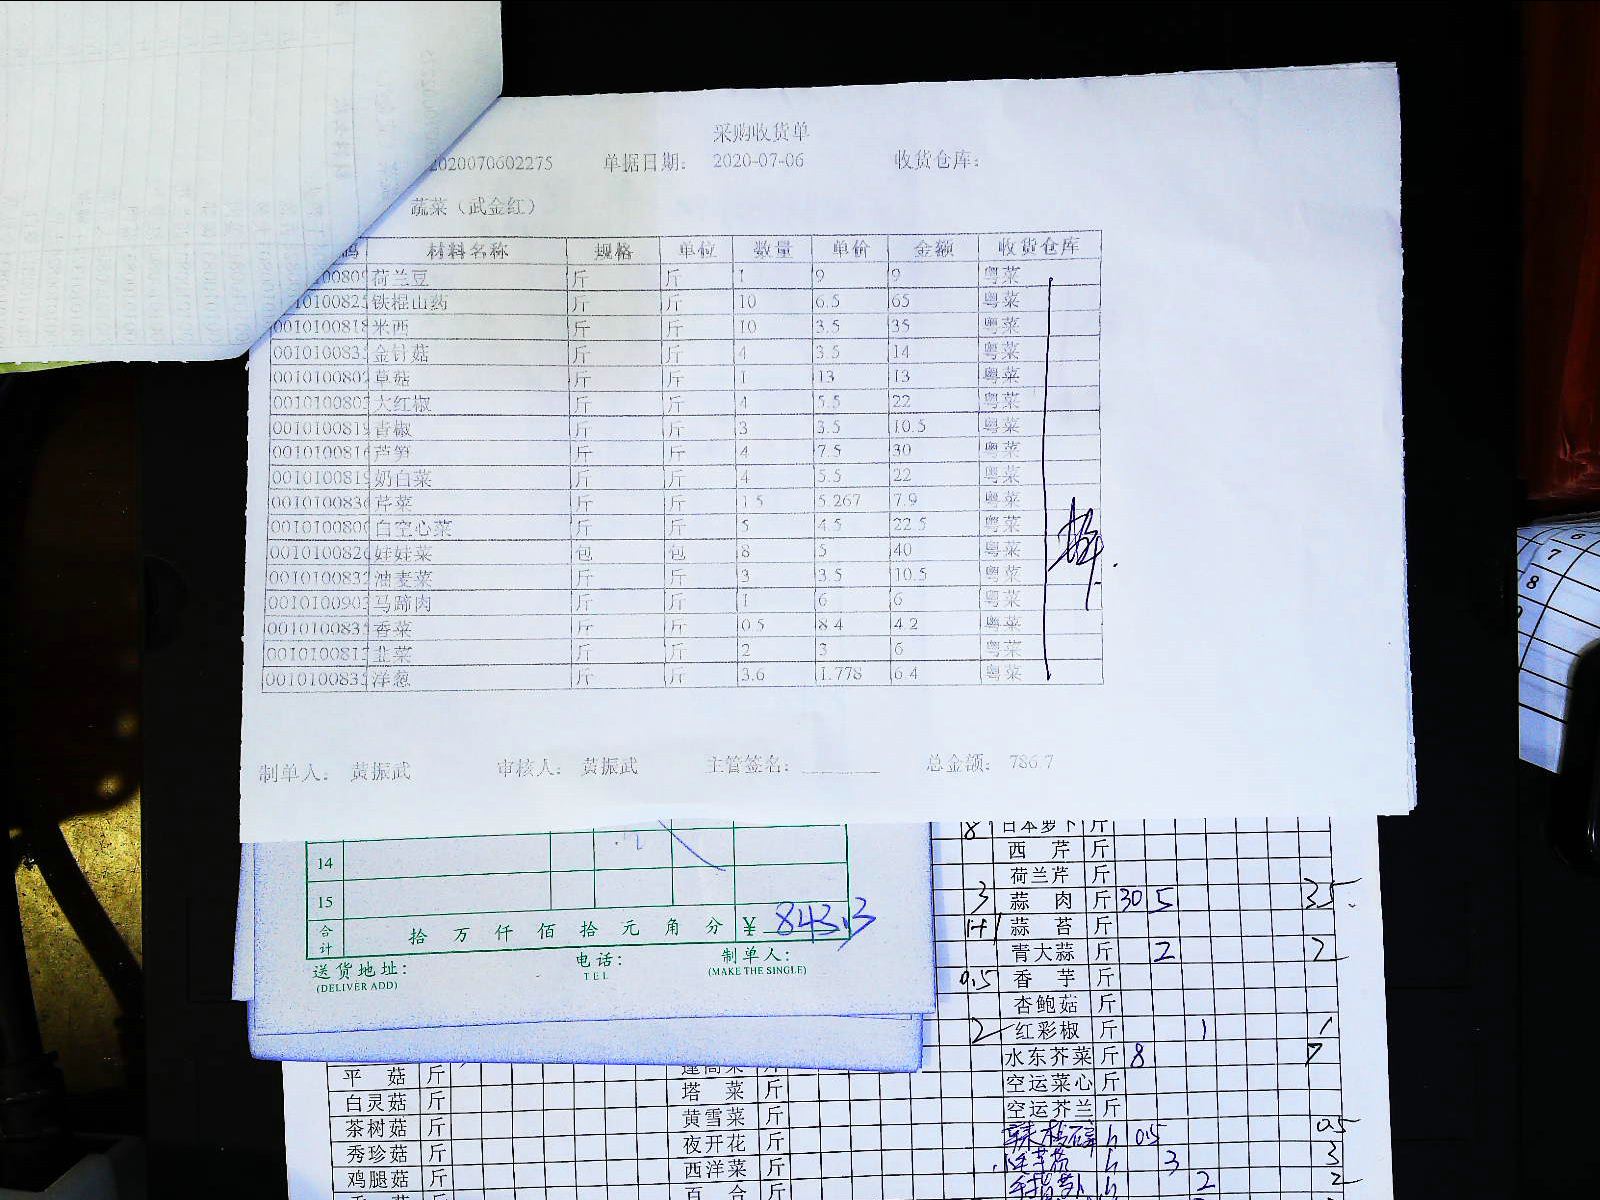 采购收货单
2020070602275 单据日期: 2020-07-06 收货仓库:
蔬菜（武金红）
码 材料名称 规格 单位 数量 单价 金额 收货仓库
荷兰豆 斤 斤 1 9 9 粤菜
铁棍山药 斤 斤 10 6.5 65 粤菜
0010100818 米西 斤 斤 10 3.5 35 粤菜
001010083 金针菇 斤 斤 4 3.5 14 粤菜
001010080 草菇 斤 斤 1 13 13 粤菜
001010080 大红椒 斤 斤 4 5.5 22 粤菜
001010081 青椒 斤 斤 3 3.5 10.5 粤菜
001010081 芦笋 斤 斤 4 7.5 30 粤菜
001010081 奶白菜 斤 斤 4 5.5 22 粤菜
001010083 芹菜 斤 斤 1.5 5.267 7.9 粤菜
001010080 白空心菜 斤 斤 5 4.5 22.5 粤菜
001010082 娃娃菜 包 包 8 5 40 粤菜
001010083 油麦菜 斤 斤 3 3.5 10.5 粤菜
001010090 马蹄肉 斤 斤 1 6 6 粤菜
001010083 香菜 斤 斤 0.5 8.4 4.2 粤菜
001010081 韭菜 斤 斤 2 3 6 粤菜
001010083 洋葱 斤 斤 3.6 1.778 6.4 粤菜
制单人: 黄振武 审核人: 黄振武 主管签名: 总金额: 786.7
14
15
合计 拾 万 仟 佰 拾 元 角 分 ¥ 843.3
送货地址: 电话: 制单人:
(DELIVER ADD) TEL (MAKE THE SINGLE)
8 日本萝卜 斤
西芹 斤
荷兰芹 斤
3 蒜肉 斤 30 5 35
蒜苔 斤
青大蒜 斤 2 2
0.5 香芋 斤
杏鲍菇 斤
2 红彩椒 斤 1 1
水东芥菜 斤 8 7
空运菜心 斤
空运芥兰 斤
0.5 0.5
3 3
2 2
平菇 斤
白灵菇 斤 塔菜 斤
茶树菇 斤 黄雪菜 斤
秀珍菇 斤 夜开花 斤
鸡腿菇 斤 西洋菜 斤
百合 斤
6
7
8